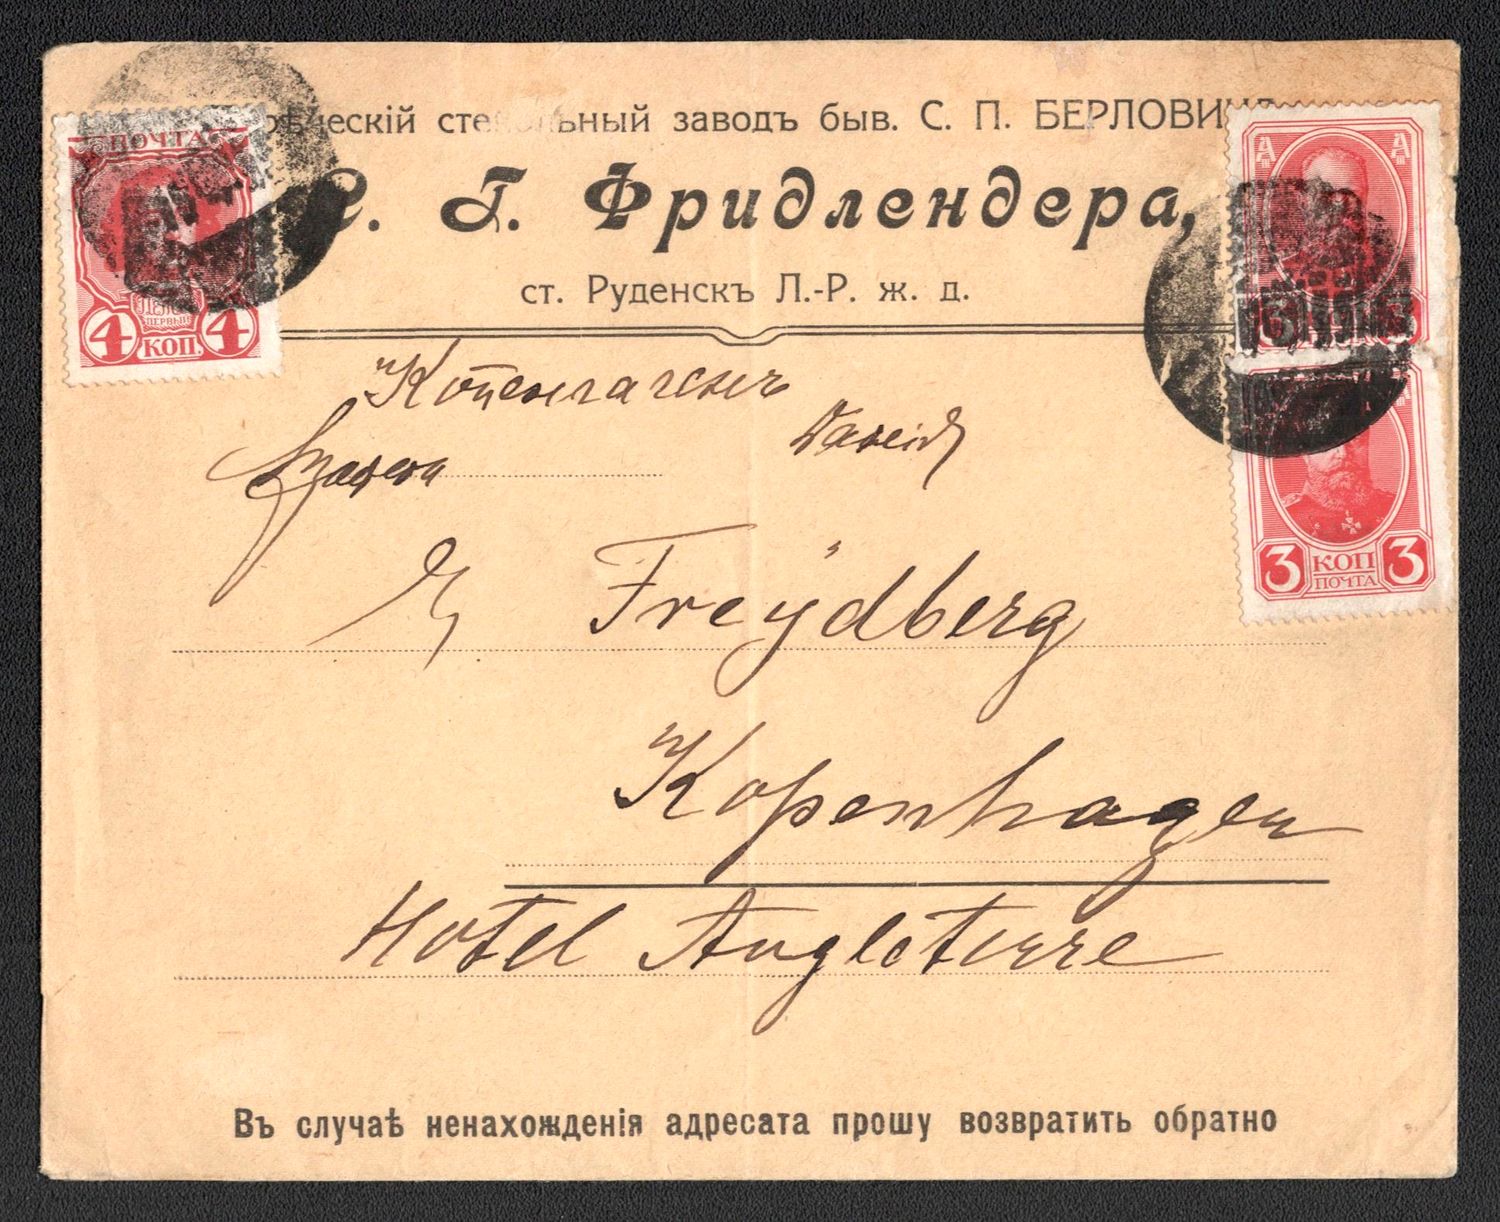 стекольный заводъ быв. С. П. БЕРЛОВИЧА
С. Г. Фридлендера,
ст. Руденскъ Л.-Р. ж. д.
ПОЧТА
4 КОП. 4
А А
3 3
3 КОП 3
ПОЧТА
Копенгагенъ
Freydberg
Kopenhagen
Hotel Angleterre
Въ случаѣ ненахожденія адресата прошу возвратить обратно